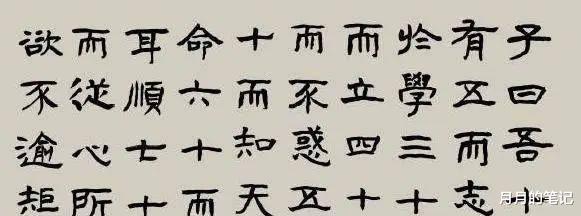 子曰吾十
有五而志
於學三十
而立四十
而不惑五
十而知天
命六十而
耳順七十
而從心所
欲不逾矩
月月的笔记